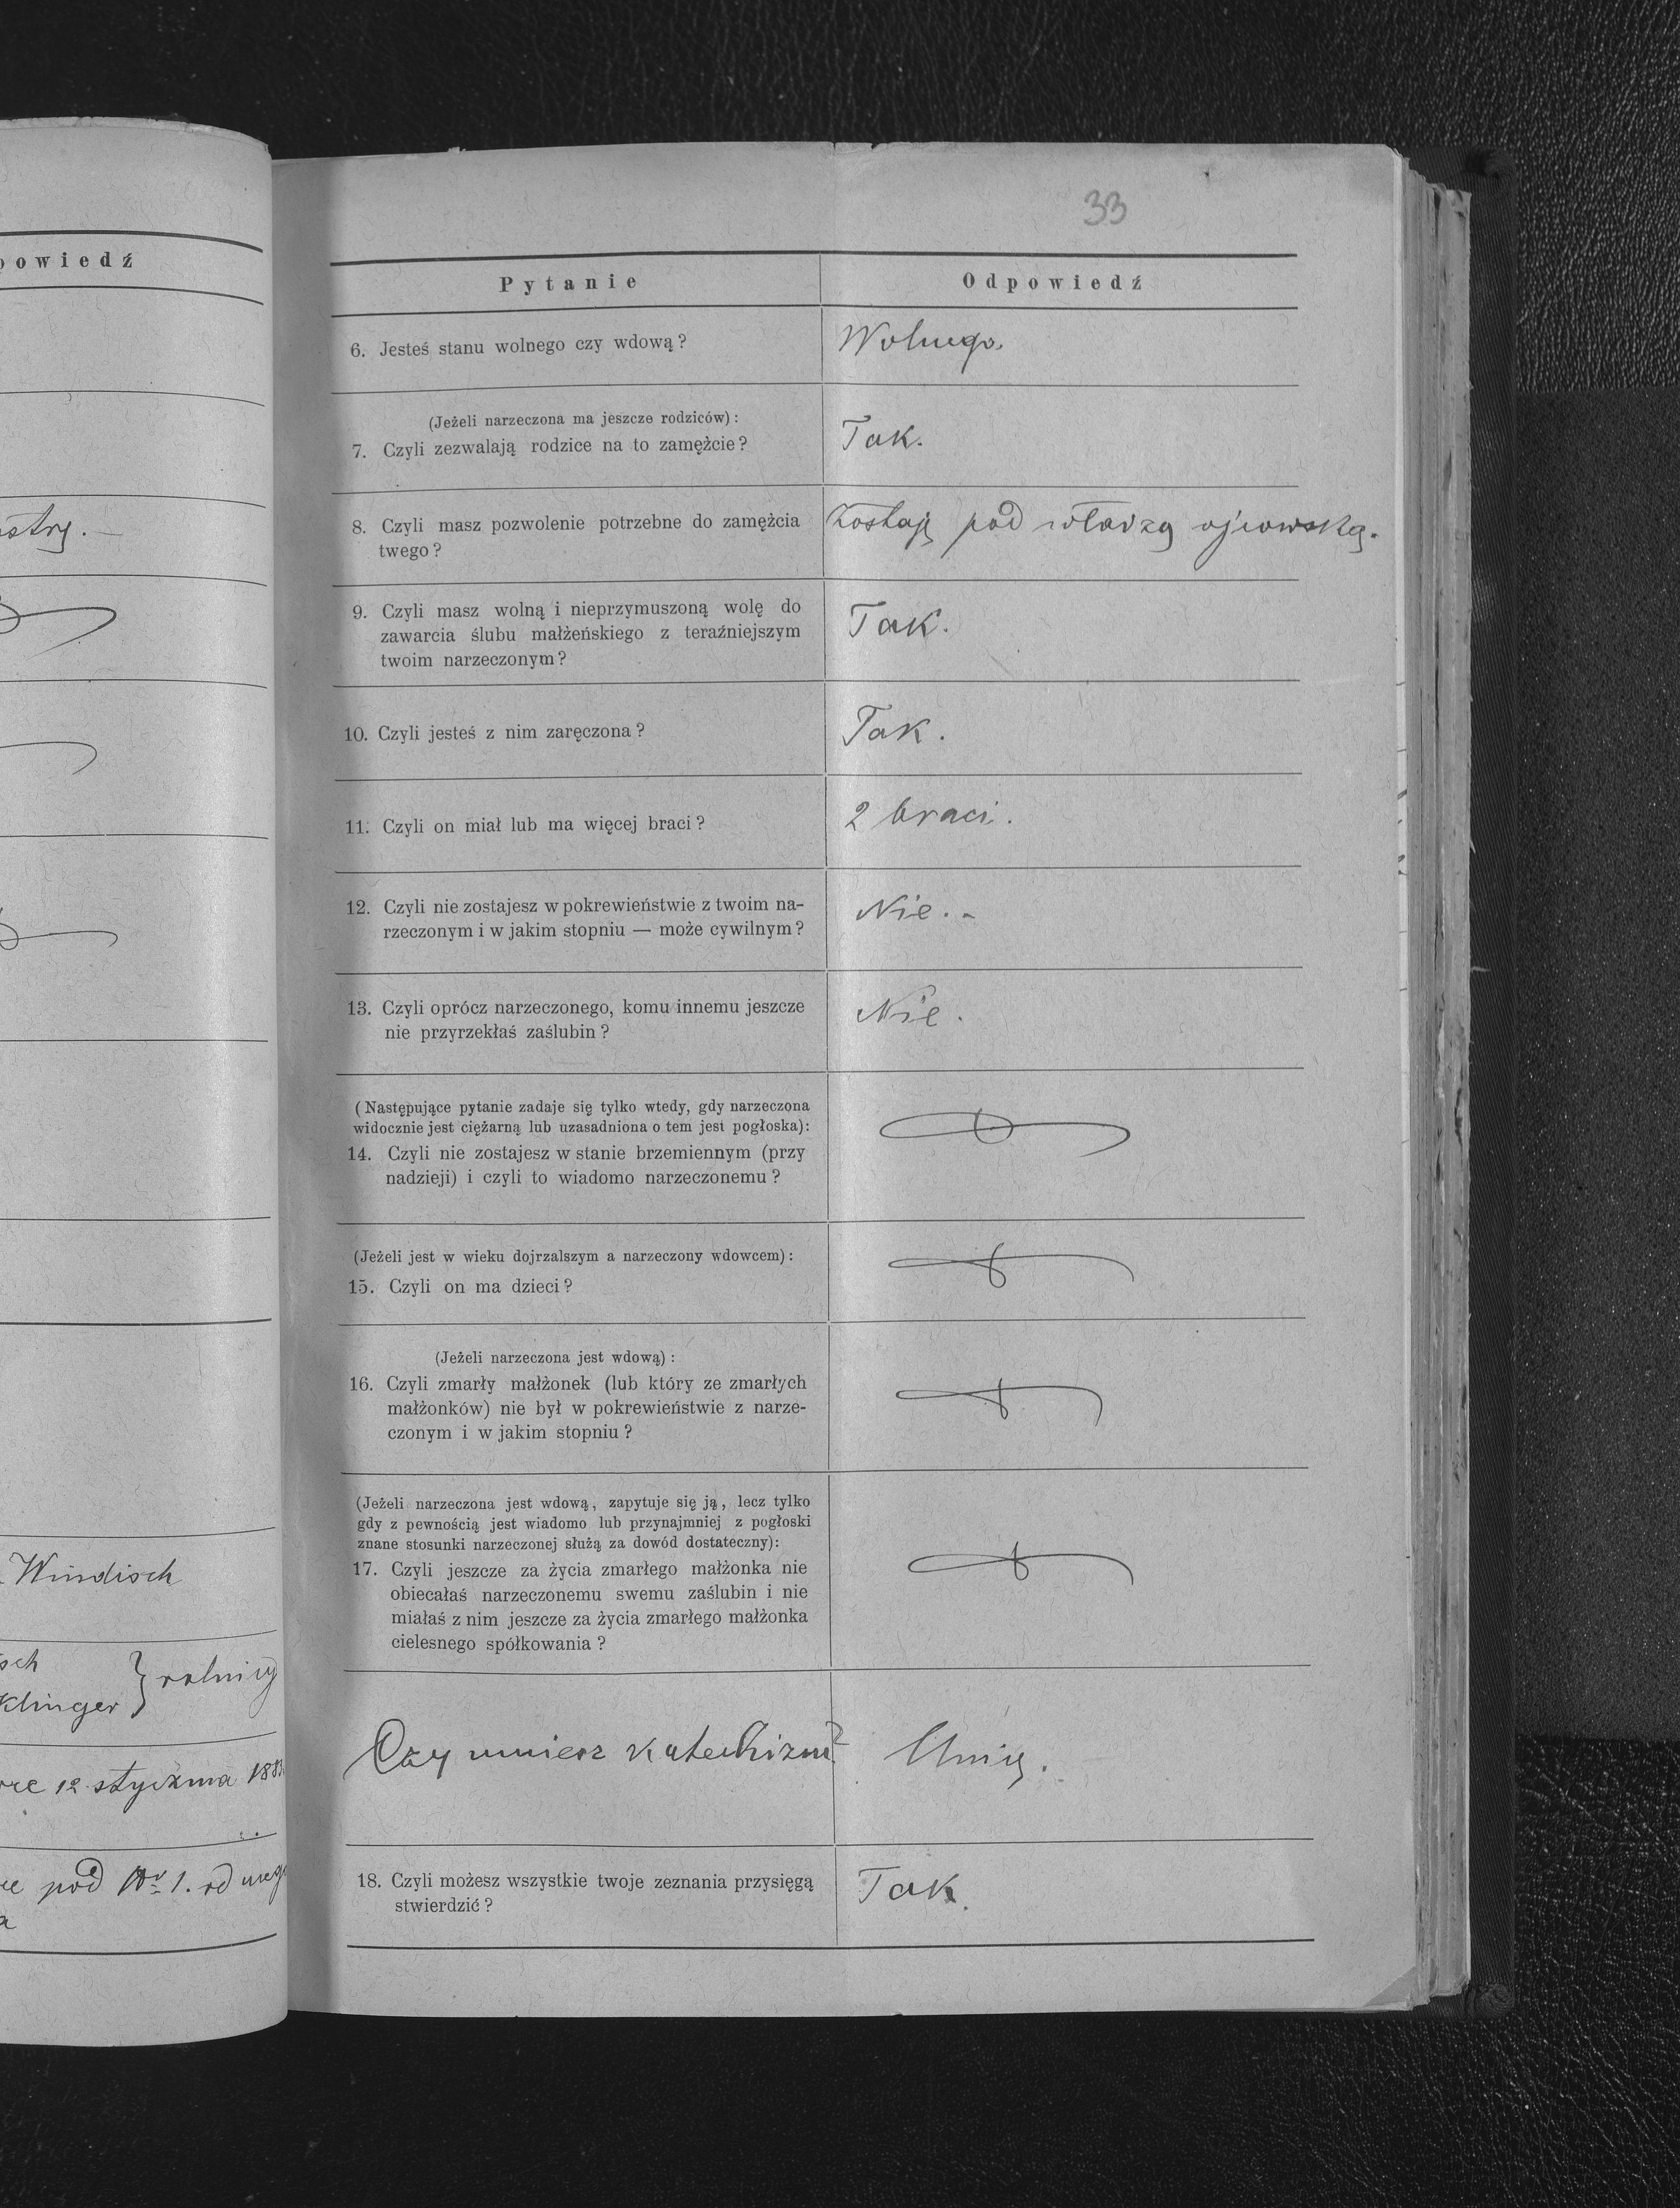 powiedź
stry. —
Windisch
sch
Klinger } rolnicy
12 stycznia 188
pod Nr 1. od
33
Pytanie
Odpowiedź
6. Jesteś stanu wolnego czy wdową?
Wolnego.
(Jeżeli narzeczona ma jeszcze rodziców):
7. Czyli zezwalają rodzice na to zamężcie?
Tak.
8. Czyli masz pozwolenie potrzebne do zamężcia
twego?
Zostaję pod władzą ojcowską.
9. Czyli masz wolną i nieprzymuszoną wolę do
zawarcia ślubu małżeńskiego z teraźniejszym
twoim narzeczonym?
Tak.
10. Czyli jesteś z nim zaręczona?
Tak.
11. Czyli on miał lub ma więcej braci?
2 braci.
12. Czyli nie zostajesz w pokrewieństwie z twoim na-
rzeczonym i w jakim stopniu — może cywilnym?
Nie. -
13. Czyli oprócz narzeczonego, komu innemu jeszcze
nie przyrzekłaś zaślubin?
Nie.
(Następujące pytanie zadaje się tylko wtedy, gdy narzeczona
widocznie jest ciężarną lub uzasadniona o tem jest pogłoska):
14. Czyli nie zostajesz w stanie brzemiennym (przy
nadzieji) i czyli to wiadomo narzeczonemu?
(Jeżeli jest w wieku dojrzalszym a narzeczony wdowcem):
15. Czyli on ma dzieci?
(Jeżeli narzeczona jest wdową):
16. Czyli zmarły małżonek (lub który ze zmarłych
małżonków) nie był w pokrewieństwie z narze-
czonym i w jakim stopniu?
(Jeżeli narzeczona jest wdową, zapytuje się ją, lecz tylko
gdy z pewnością jest wiadomo lub przynajmniej z pogłoski
znane stosunki narzeczonej służą za dowód dostateczny):
17. Czyli jeszcze za życia zmarłego małżonka nie
obiecałaś narzeczonemu swemu zaślubin i nie
miałaś z nim jeszcze za życia zmarłego małżonka
cielesnego spółkowania?
Czy umiesz katechizm?
Umię.
18. Czyli możesz wszystkie twoje zeznania przysięgą
stwierdzić?
Tak.